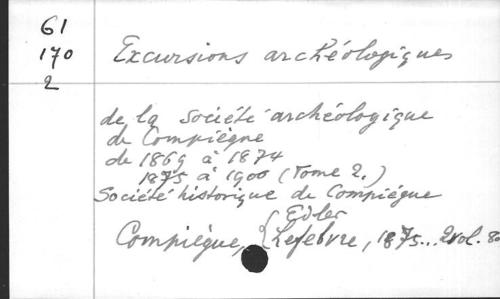 61
170
2
Excursions archéologiques
de la Société archéologique
de Compiègne
de 1869 à 1874
1875 à 1900 (Tome 2.)
Société historique de Compiègne
Edler
Compiègne, { Lefebvre, 1875... 2vol. 8o